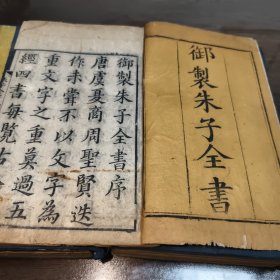 御製朱子全書
御製朱子全書序
唐虞夏商周聖賢迭
作未嘗不以文字為
重文字之重莫過五
經四書每覽古